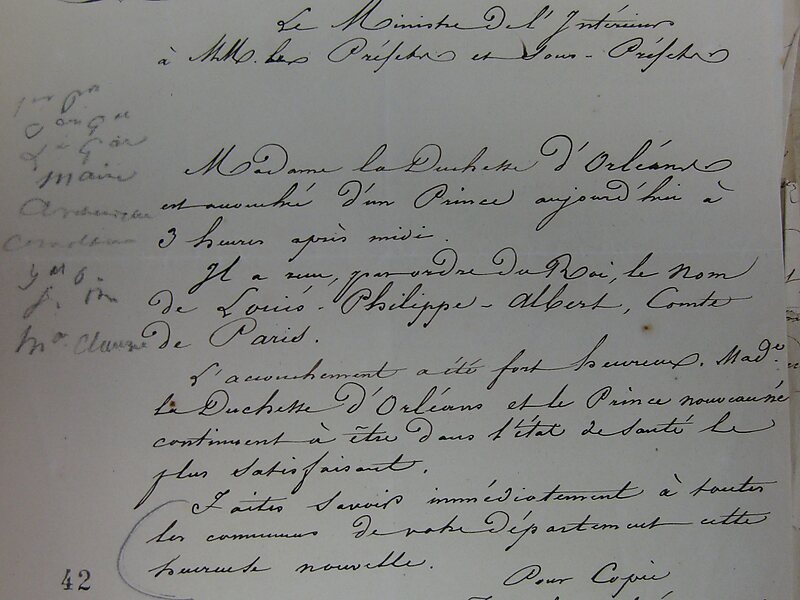 Le Ministre de l'Intérieur
à MM. les Préfets et Sous-Préfets
Madame la Duchesse d'Orléans
est accouchée d'un Prince aujourd'hui à
3 heures après midi.
Il a reçu, par ordre du Roi, le nom
de Louis-Philippe-Albert, Comte
de Paris.
L'accouchement a été fort heureux. Made
la Duchesse d'Orléans et le Prince nouveau né
continuent à être dans l'état de santé le
plus satisfaisant.
Faites savoir immédiatement à toutes
les communes de votre département cette
heureuse nouvelle.
Maire
42
Pour Copie